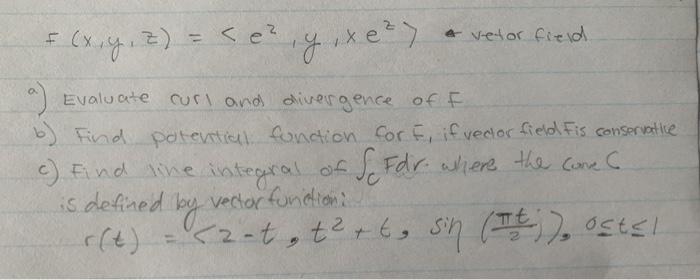 F(x,y,z) = <e^z, y, xe^z> ← vetor field
a) Evaluate curl and divergence of F
b) Find potential function for F, if vector field F is conservative
c) Find line integral of ∫_C Fdr. where the curve C
is defined by vector function:
r(t) = <2-t, t²+t, sin(πt/2)>, 0≤t≤1